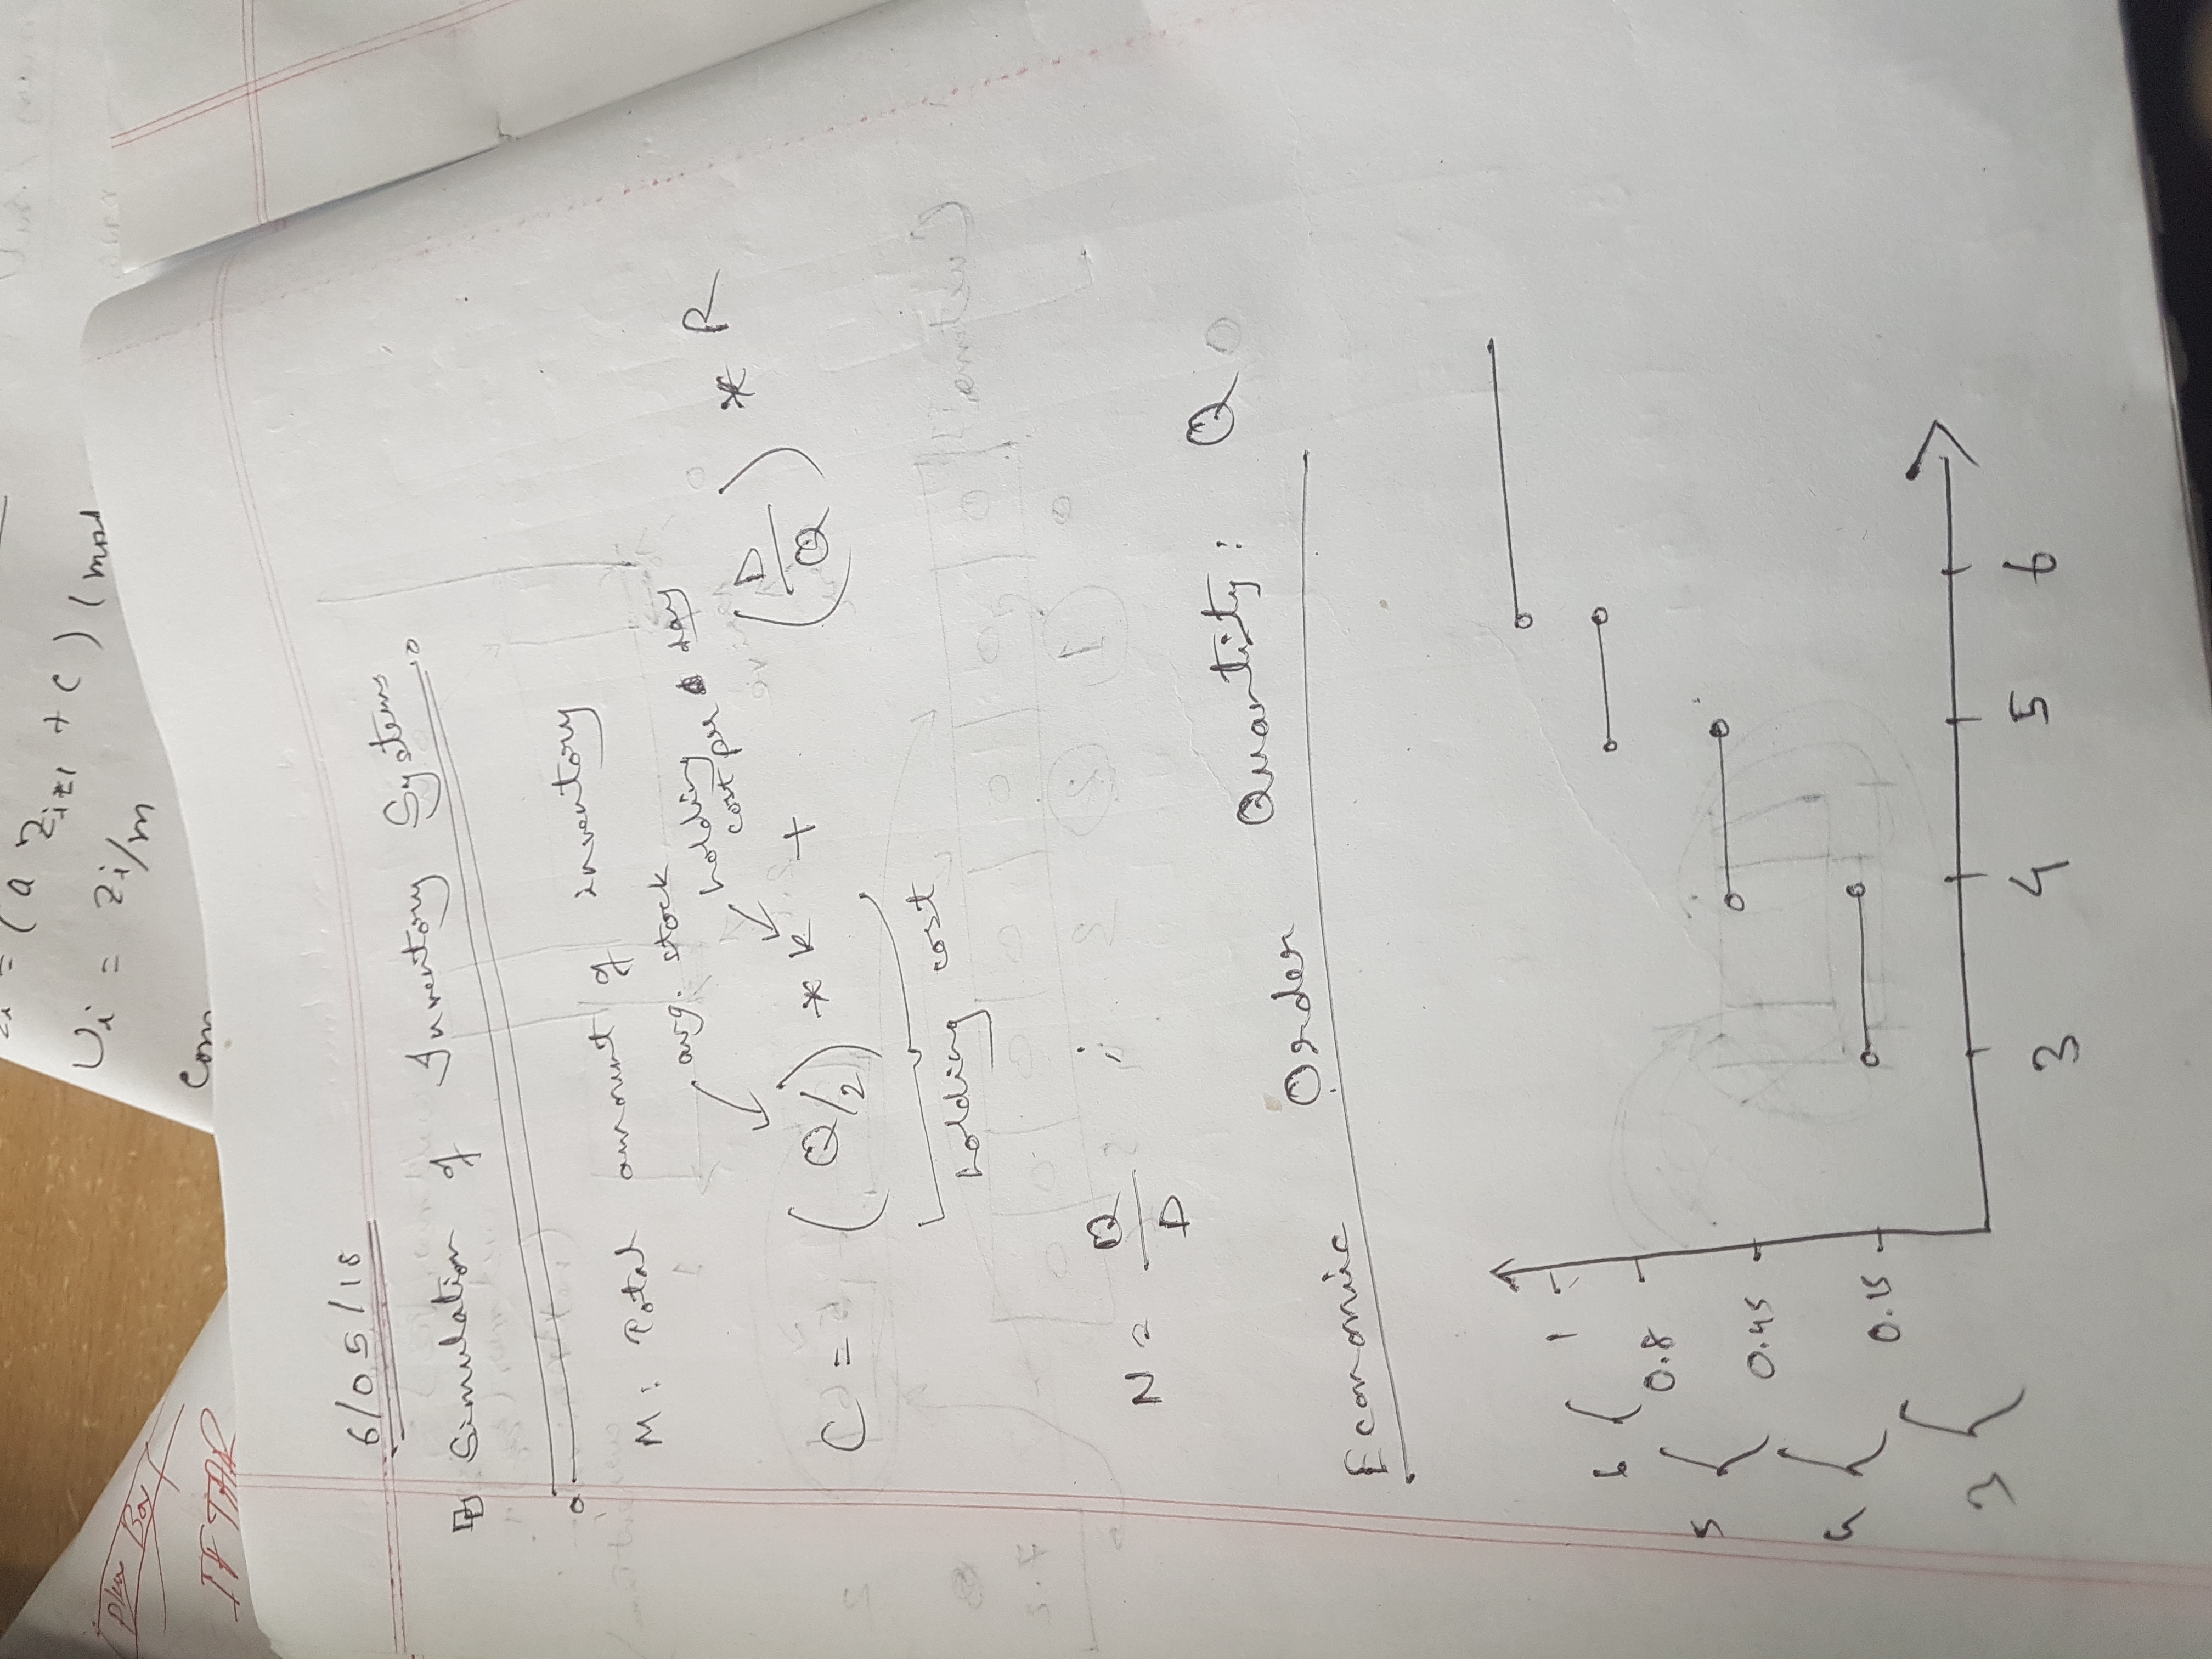 Zi = (a Zi-1 + c) (mod
Ui = Zi/m
Com
Plan Box
IFTAR
6/05/18
Simulation of Inventory Systems
M: Total amount of inventory
avg. stock
holding cost per day
C = (Q/2) * k + (D/Q) * R
holding cost
N = Q/D ;
Economic Order Quantity: Q
1
6 {
0.8
5 {
0.45
4 {
0.15
3 {
3 4 5 6